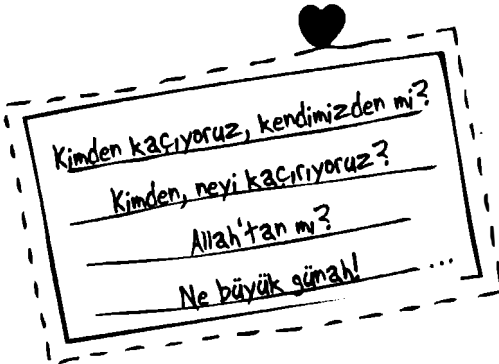 Kimden kaçıyoruz, kendimizden mi?
Kimden, neyi kaçırıyoruz?
Allah'tan mı?
Ne büyük günah!
...